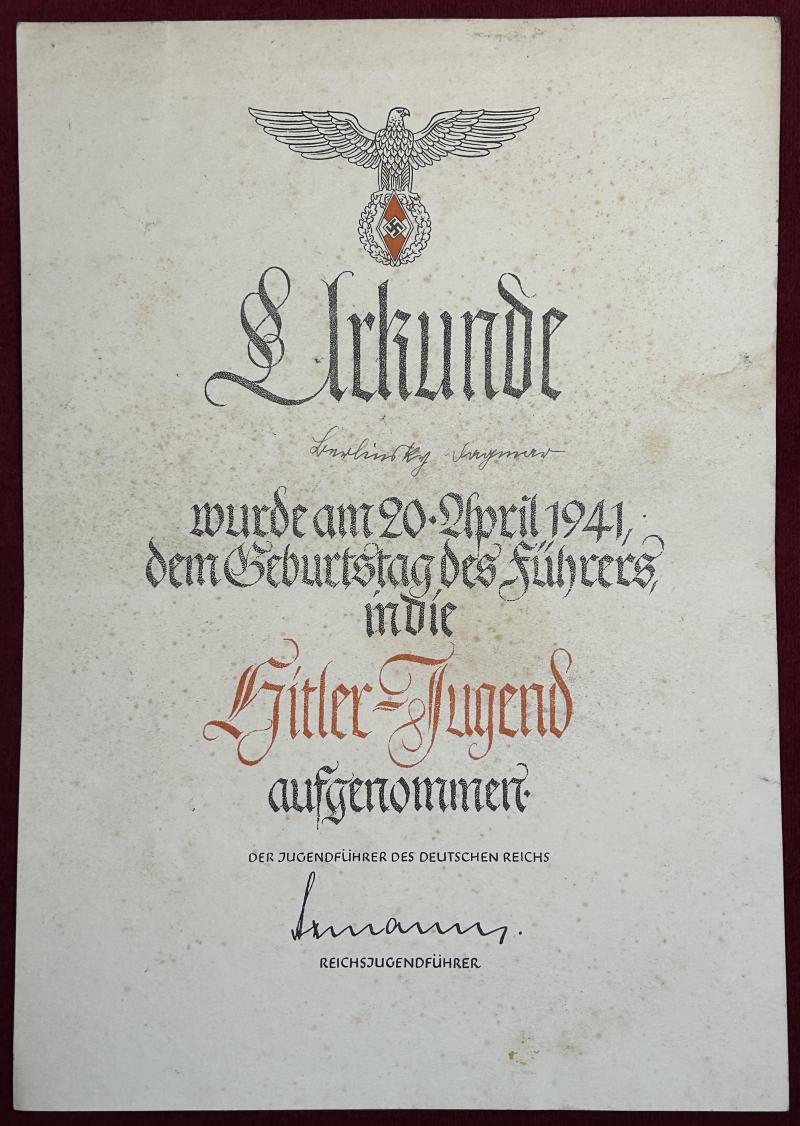 Urkunde
Berlinsky Dagmar
wurde am 20. April 1941,
dem Geburtstag des Führers,
in die
Hitler-Jugend
aufgenommen.
DER JUGENDFÜHRER DES DEUTSCHEN REICHS
Axmann.
REICHSJUGENDFÜHRER